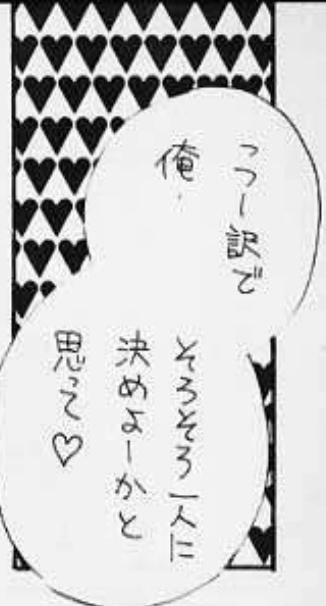 っつー訳で
俺、
そろそろ一人に
決めよーかと
思って♡